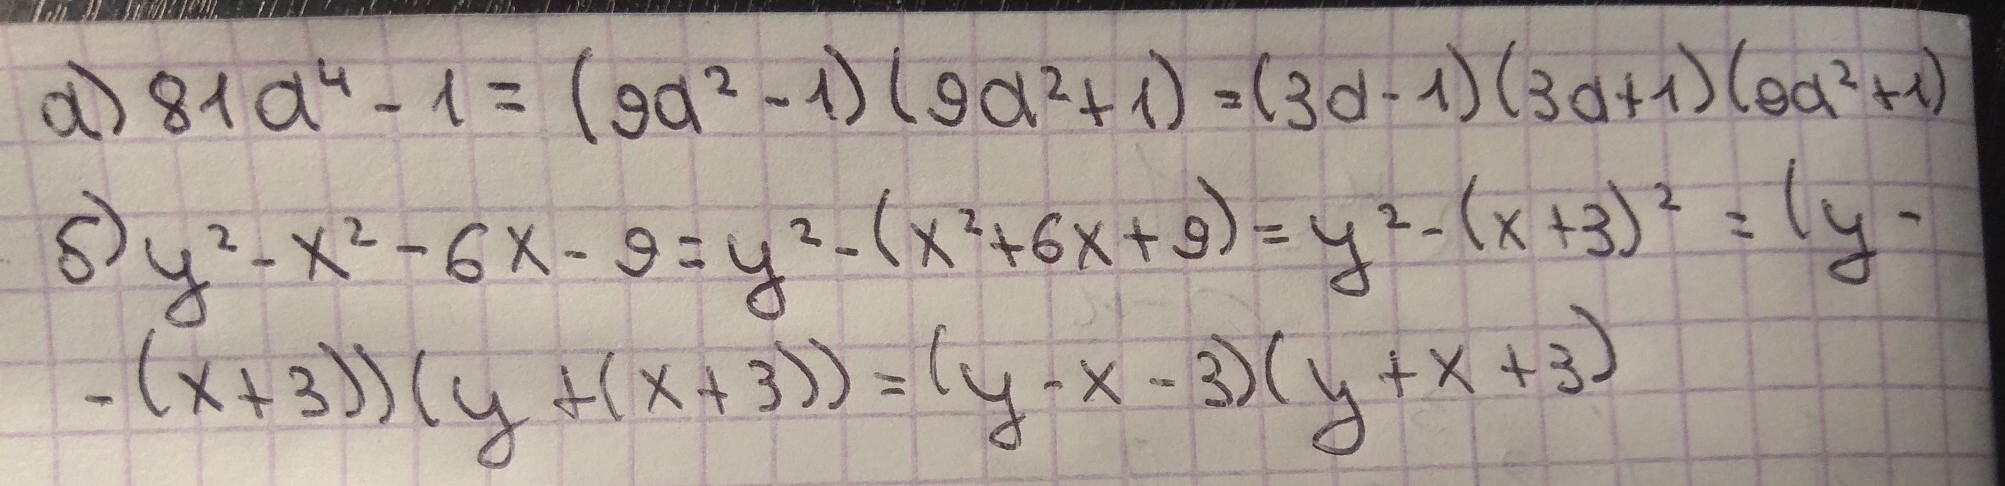 а) 81a⁴ - 1 = (9a² - 1)(9a² + 1) = (3a - 1)(3a + 1)(9a² + 1)
б) y² - x² - 6x - 9 = y² - (x² + 6x + 9) = y² - (x + 3)² = (y -
- (x + 3))(y + (x + 3)) = (y - x - 3)(y + x + 3)